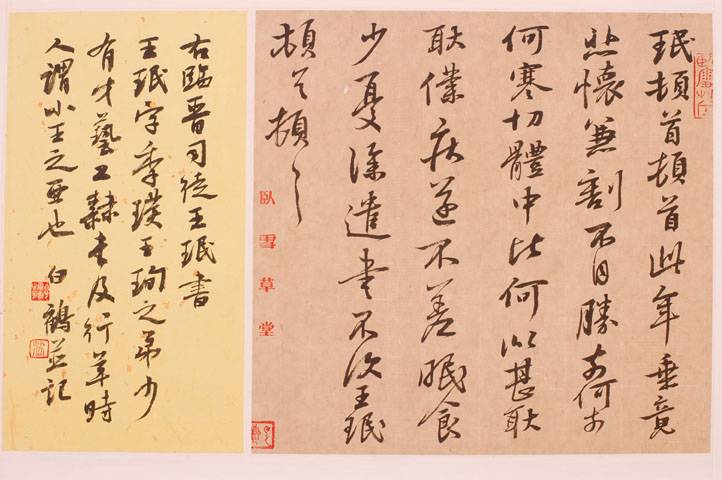 珉頓首頓首此年垂竟
悲懷兼割不自勝奈何奈
何寒切體中比何似甚耿
耿僕疾遂不差眠食
少憂深遣書不次王珉
頓首頓
臥雪草堂
右臨晉司徒王珉書
王珉字季琰王珣之弟少
有才藝工隸書及行草時
人謂小王之亞也 白鶴並記